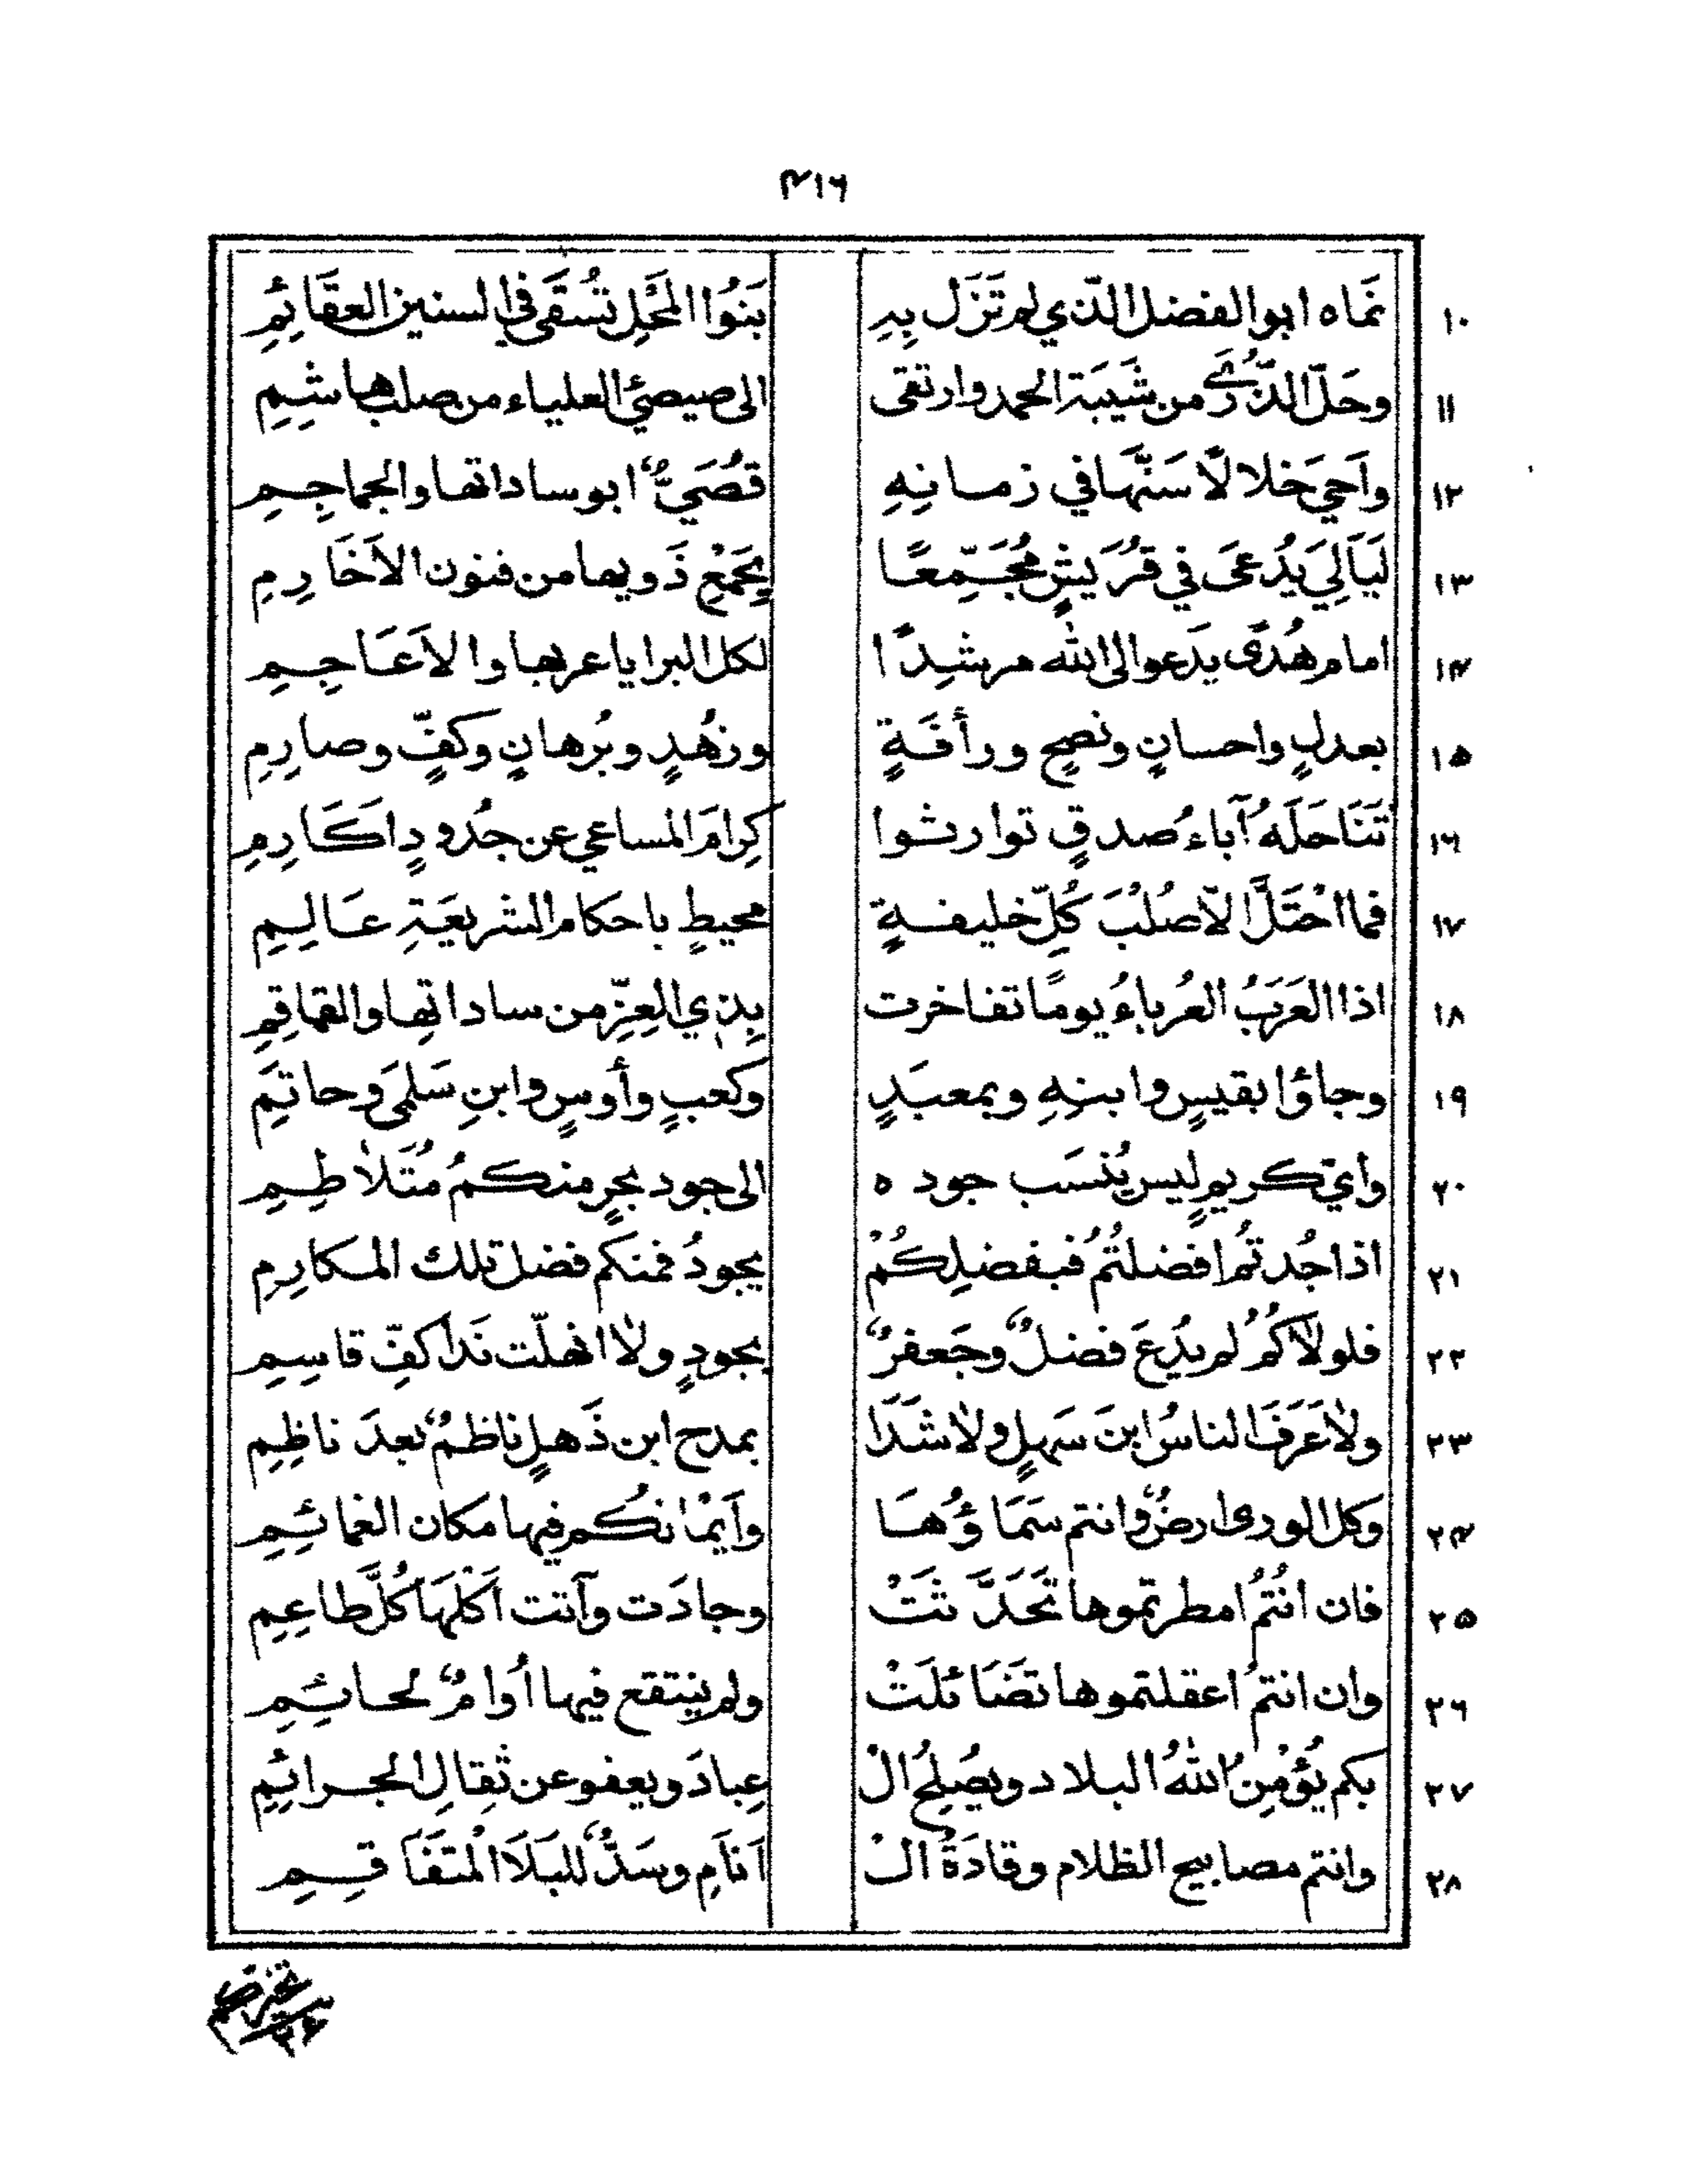 ٤١٦
١٠ نَمَاه ابوالفضل الّذي لم تَزَل بِهِ بَنُوا المَحْلِ تُسْقَى في السنين العقَائِمِ
١١ وحَلّ الذُّرَى من شَيبَة الحمد وارتقى الى صيصئ العلياء من صلب هاشِمِ
١٢ وآحيَ خلالاً سَنَّهَا في زمانِهِ قُصَيٌّ ابو ساداتها والجماجِمِ
١٣ لَيَالِيَ يُدعَى في قُرَيشٍ مُجَمِّعًا بِجَمْعِ ذَويها من فنون الاَخَارِمِ
١٤ امام هُدًى يَدعوالى الله مرشِدًا لكل البرايا عربها والاَعَاجِمِ
١٥ بعدلٍ واحسانٍ ونصحٍ ورأفَةٍ وزُهدٍ وبُرهانٍ وكفٍّ وصارِمِ
١٦ تَنَاحَلَهُ آباءُ صدقٍ توارثوا كِرامَ المساعي عن جُدودٍ اَكَارِمِ
١٧ فما احْتَلَّ الاّ صُلْبَ كُلِّ خليفةٍ محيطٍ باحكام الشريعَةِ عَالِمِ
١٨ اذا العَرَبُ العُرباءُ يومًا تفاخرت بِذي العِزِّ من ساداتِها والقماقِمِ
١٩ وجاؤا بقيسٍ وابنهِ وبمعبَدٍ وكعبٍ وأوسٍ وابنِ سَلمَى وحاتِمَ
٢٠ وأيّ كريمٍ ليس يُنْسَب جوده الى جود بحرٍ منكمُ مُتَلاطِمِ
٢١ اذا جُدتمُ افضلتُمُ فبفضلِكُمْ يجودُ فمنكم فضل تلك المكارِمِ
٢٢ فلولاكُمُ لم يُدعَ فضلٌ وجَعفرٌ بجودٍ ولا انهلّت نَدا كفِّ قاسِمِ
٢٣ ولا عَرَفَ الناسُ ابنَ سَهلٍ ولا شَدَا بمدح ابن ذَهلٍ ناظمٌ بعدَ ناظِمِ
٢٤ وكل الورى ارضٌ وانتم سَمَاؤُهَا وآيمانكُم فيها مكان الغمائِمِ
٢٥ فان انتُمُ امطرتموها تَحَدَّثَتْ وجادَت وآتت اُكْلَهَا كُلَّ طاعِمِ
٢٦ وان انتمُ اعقلتموها تضَائلَتْ ولم ينتقع فيها أوامٌ لحائِمِ
٢٧ بكم يُؤْمِنُ اللهُ البلاد ويُصلِحُ الْ عِبادَ ويعفو عن ثِقالِ الجرائِمِ
٢٨ وانتم مصابيح الظلام وقادَةُ الْ اَنَامِ وسَدٌّ للبَلَا المُتَفَاقِمِ